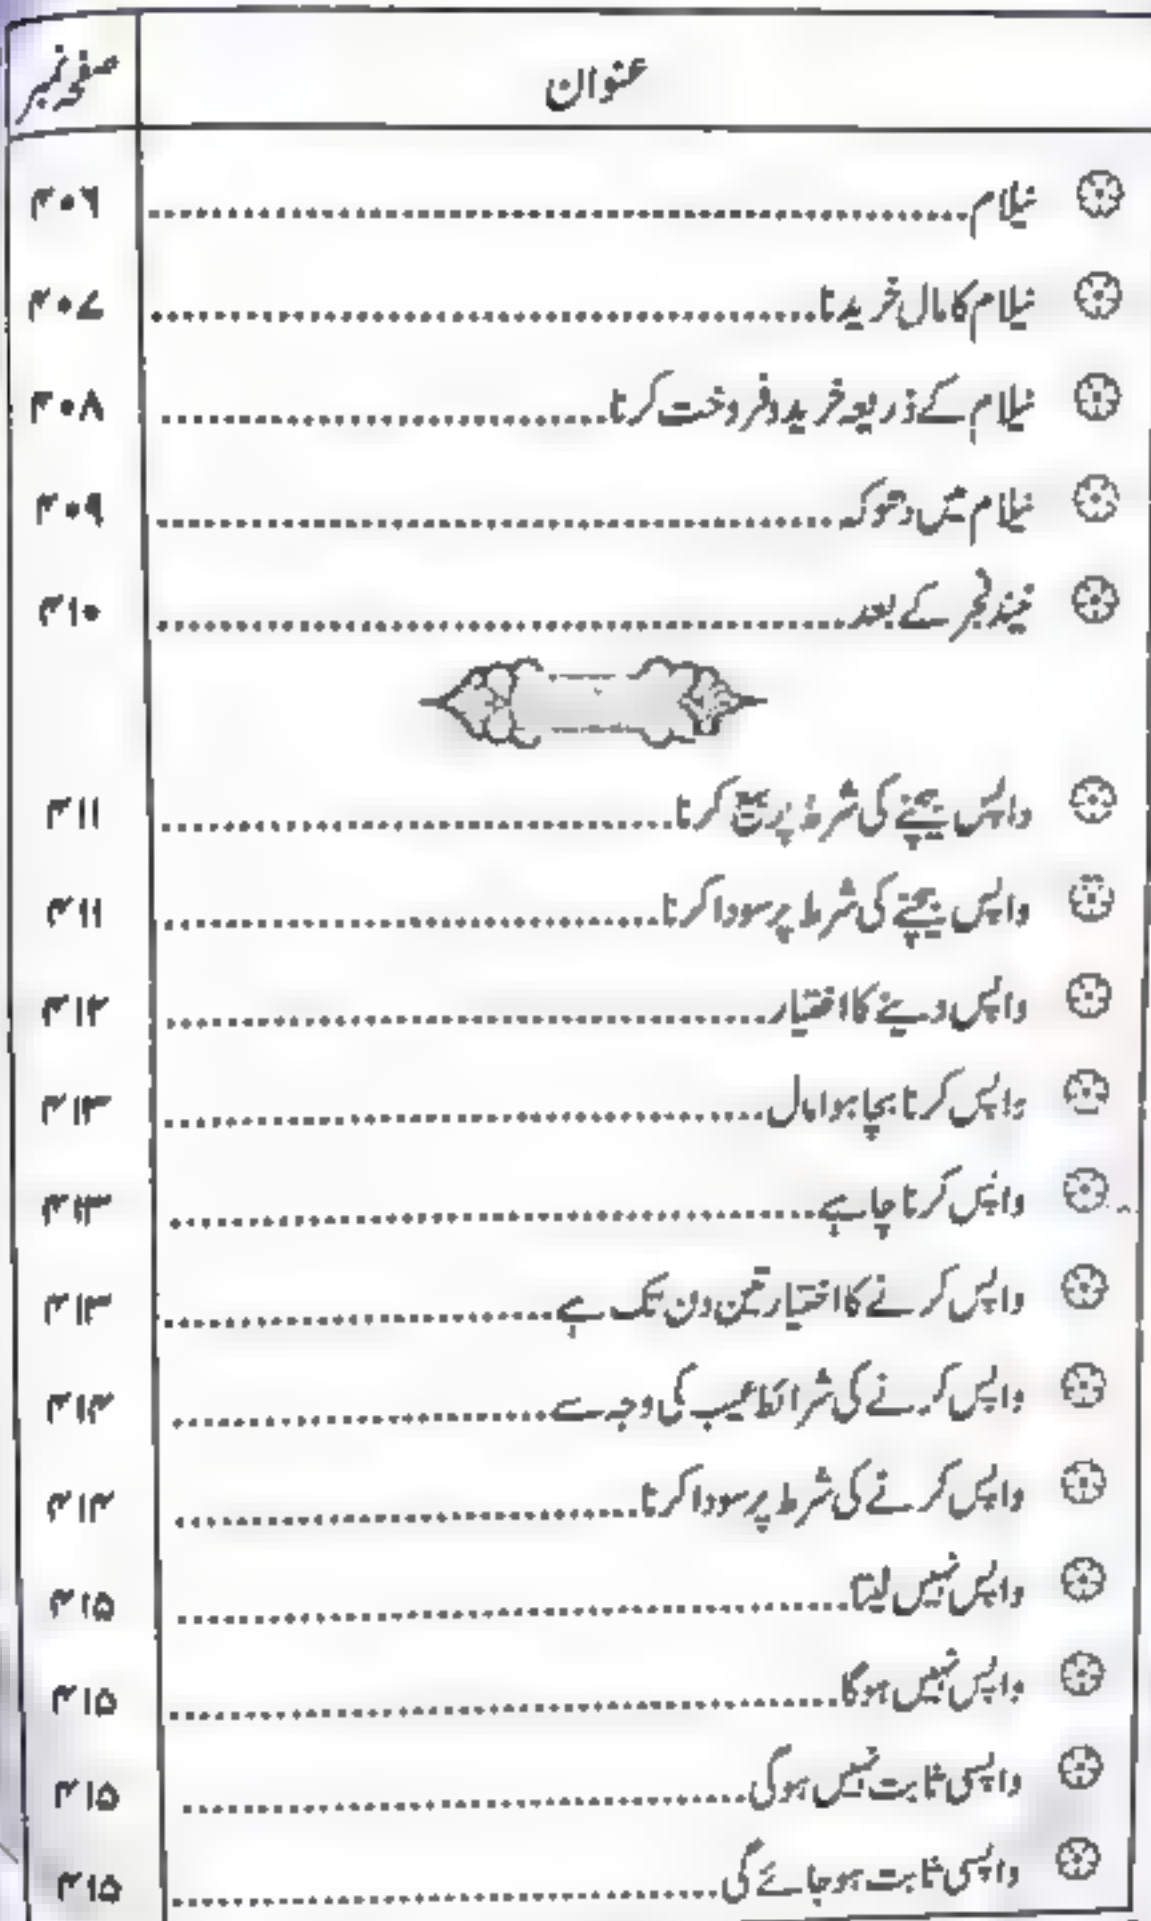 صفحہ نمبر	عنوان
نیلام ۴۰۶
نیلام کا مال خریدنا ۴۰۷
نیلام کے ذریعہ خرید و فروخت کرنا ۴۰۸
نیلام میں دھوکہ ۴۰۹
نیند فجر کے بعد ۴۱۰
واپس بیچنے کی شرط پر بیع کرنا ۴۱۱
واپس بیچنے کی شرط پر سودا کرنا ۴۱۱
واپس دینے کا اختیار ۴۱۲
واپس کرنا بچا ہوا مال ۴۱۳
واپس کرنا چاہے ۴۱۳
واپس کرنے کا اختیار تین دن تک ہے ۴۱۳
واپس کرنے کی شرائط عیب کی وجہ سے ۴۱۴
واپس کرنے کی شرط پر سودا کرنا ۴۱۴
واپس نہیں لیتا ۴۱۵
واپس نہیں ہوگا ۴۱۵
واپسی ثابت نہیں ہوگی ۴۱۵
واپسی ثابت ہو جائے گی ۴۱۵